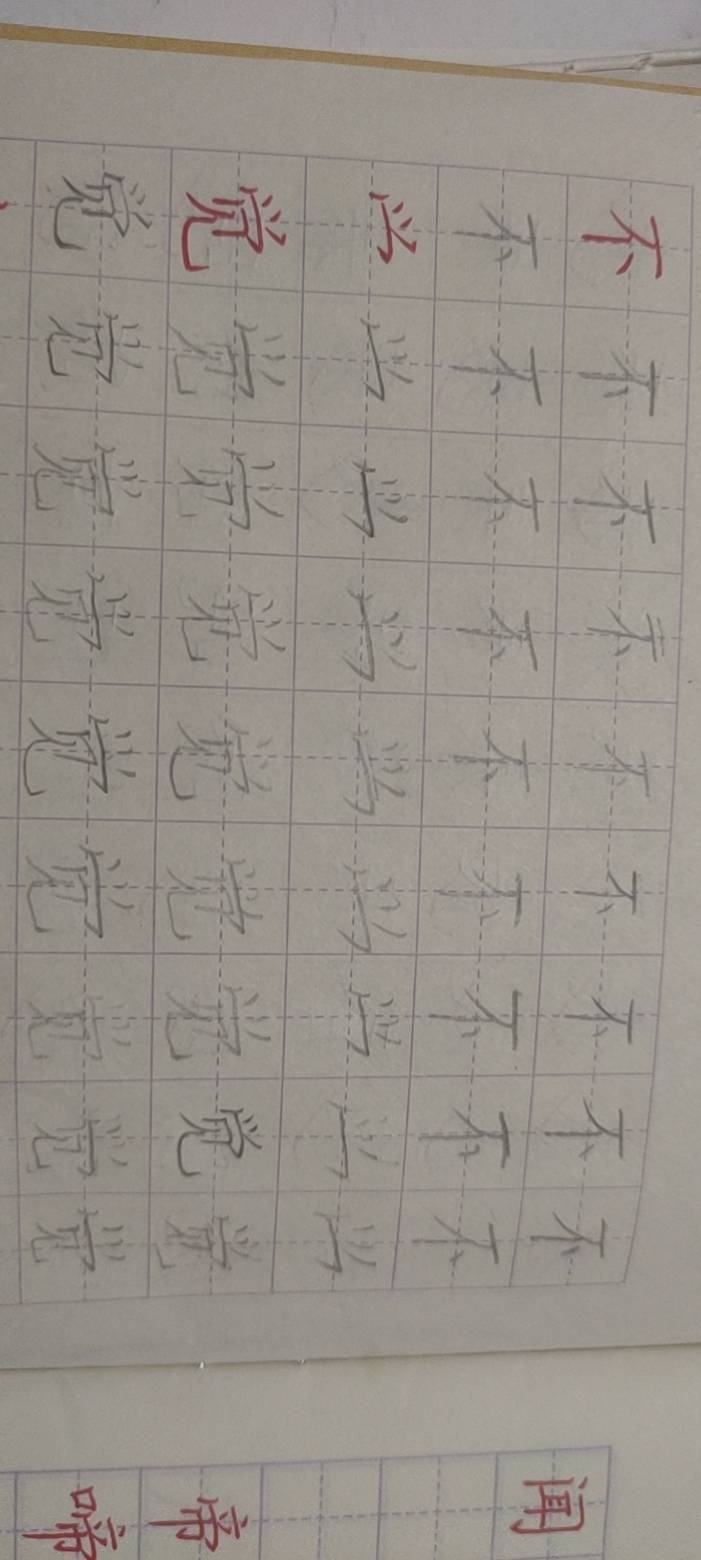 不不不不不不不不不
不不不不不不不不不
觉觉觉觉觉觉觉觉觉
觉觉觉觉觉觉觉觉觉
闻
帝
啼